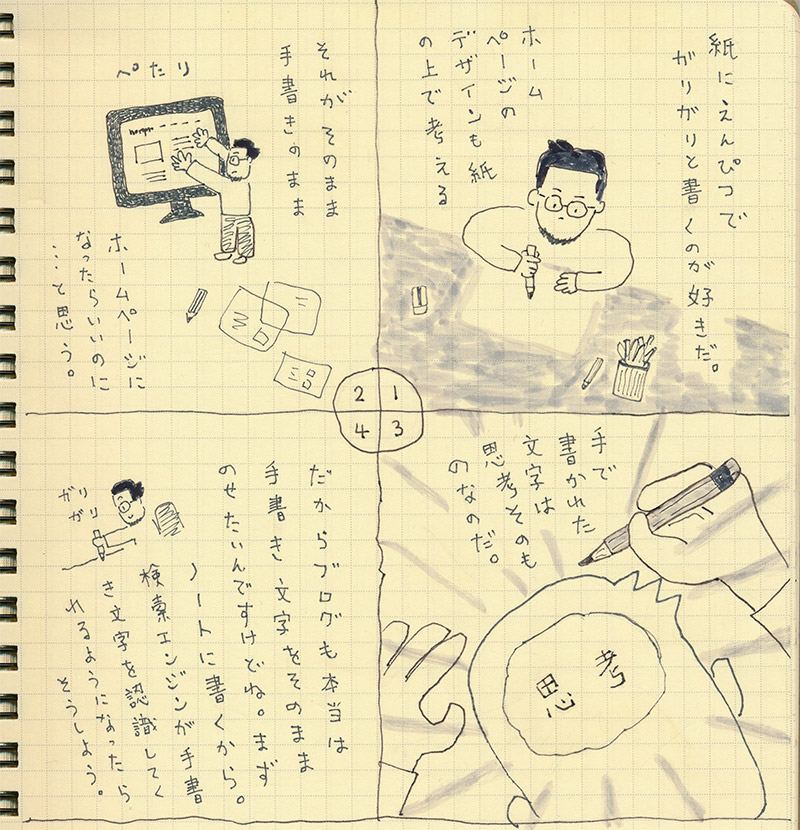 紙にえんぴつで
がりがりと書くのが好きだ。
ホーム
ページの
デザインも紙
の上で考える
1
それが そのまま
手書きのまま
ぺたり
ホームページに
なったらいいのに
…と思う。
2
手で
書かれた
文字は
思考そのも
のなのだ。
思考
3
だからブログも本当は
手書き文字をそのまま
のせたいんですけどね。まず
ノートに書くから。
検索エンジンが手書
き文字を認識してく
れるようになったら
そうしよう。
ガリ
ガリ
4